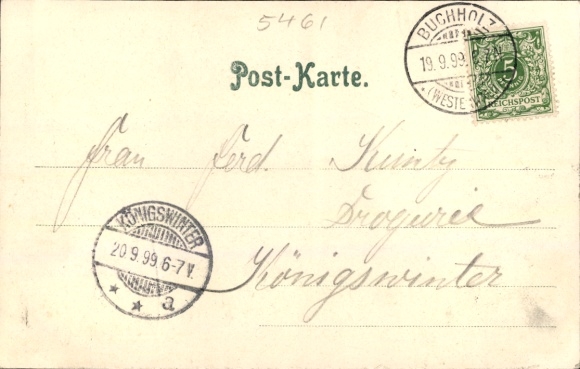 5461
BUCHHOLZ
19.9.99.
(WESTERWALD)
5
REICHSPOST
Post-Karte.
Frau Ferd.
Drogurie
Königswinter
KÖNIGSWINTER
20.9.99.6-7V.
* * a